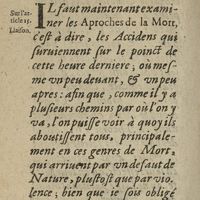 IL faut maintenant exami-
Sur l'ar-
ticle 15.
Liaison.
ner les Aproches de la Mort,
c'est à dire, les Accidens qui
suruiennent sur le poinct de
cette heure derniere; ou mes-
me vn peu deuant, & vn peu
apres: afin que, comme il y a
plusieurs chemins par où l'on y
va, l'on puisse voir à quoy ils
aboutissent tous, principale-
ment en ces genres de Mort,
qui arriuent par vn defaut de
Nature, plustost que par vio-
lence; bien que ie sois obligé